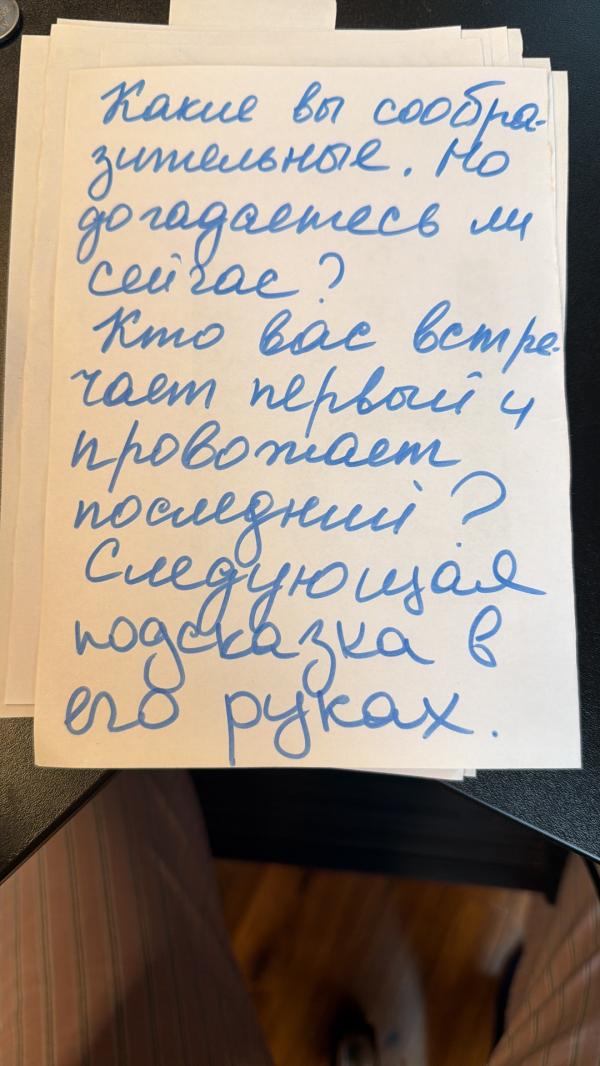 Какие вы сообра-
зительные. Но
догадаетесь ли
сейчас?
Кто вас встре-
чает первый и
провожает
последний?
Следующая
подсказка в
его руках.